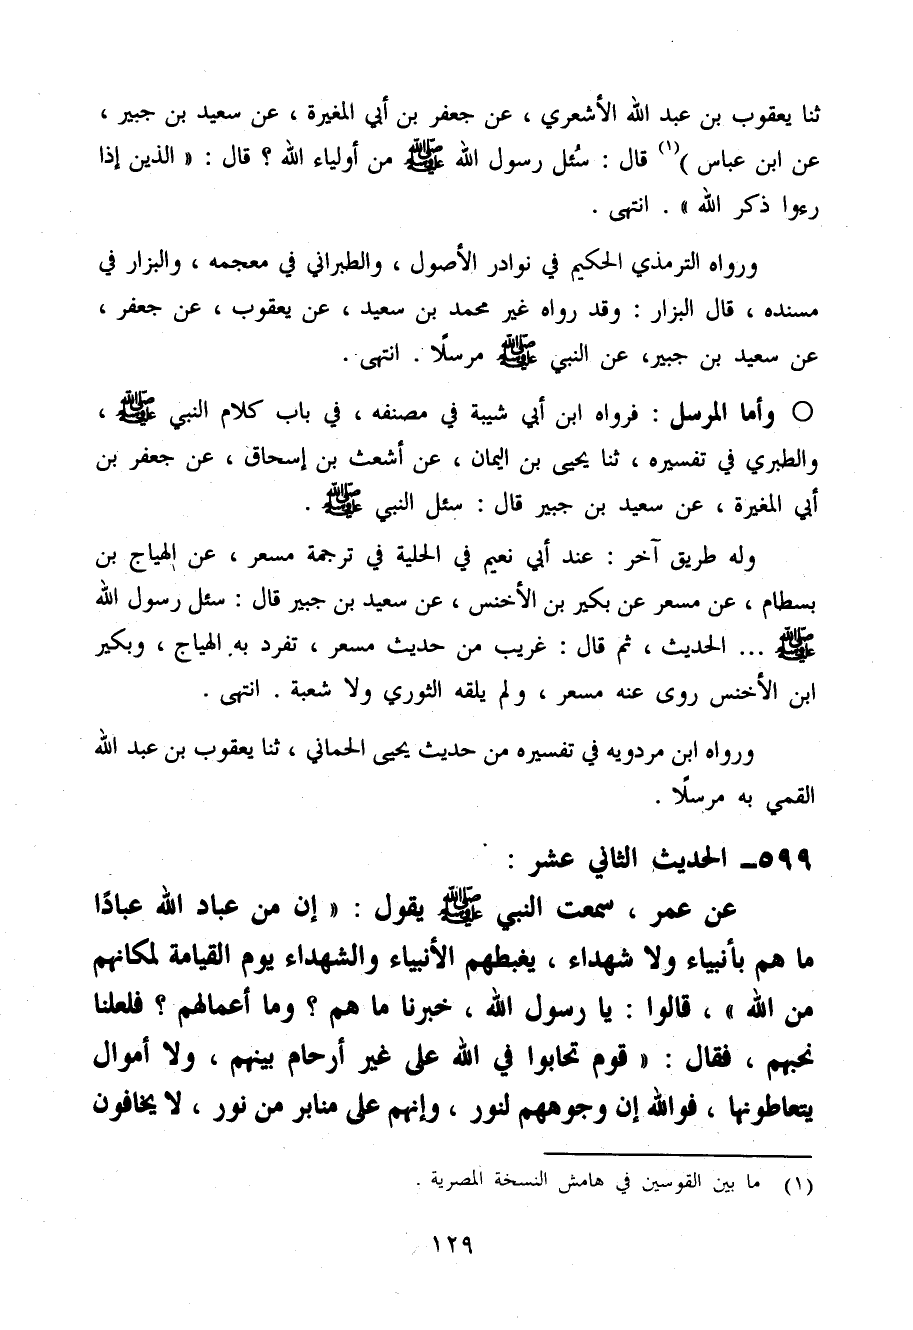 ثنا يعقوب بن عبد الله الأشعري ، عن جعفر بن أبي المغيرة ، عن سعيد بن جبير ،
عن ابن عباس )(١) قال : سُئل رسول الله ﷺ من أولياء الله ؟ قال : « الذين إذا
رءوا ذكر الله » . انتهى .
ورواه الترمذي الحكيم في نوادر الأصول ، والطبراني في معجمه ، والبزار في
مسنده ، قال البزار : وقد رواه غير محمد بن سعيد ، عن يعقوب ، عن جعفر ،
عن سعيد بن جبير، عن النبي ﷺ مرسلًا . انتهى .
○ وأما المرسل : فرواه ابن أبي شيبة في مصنفه ، في باب كلام النبي ﷺ ،
والطبري في تفسيره ، ثنا يحيى بن اليمان ، عن أشعث بن إسحاق ، عن جعفر بن
أبي المغيرة ، عن سعيد بن جبير قال : سئل النبي ﷺ .
وله طريق آخر : عند أبي نعيم في الحلية في ترجمة مسعر ، عن الهياج بن
بسطام ، عن مسعر عن بكير بن الأخنس ، عن سعيد بن جبير قال : سئل رسول الله
ﷺ ... الحديث ، ثم قال : غريب من حديث مسعر ، تفرد به الهياج ، وبكير
ابن الأخنس روى عنه مسعر ، ولم يلقه الثوري ولا شعبة . انتهى .
ورواه ابن مردويه في تفسيره من حديث يحيى الحماني ، ثنا يعقوب بن عبد الله
القمي به مرسلًا .
٥٩٩ـ الحديث الثاني عشر :
عن عمر ، سمعت النبي ﷺ يقول : « إن من عباد الله عبادًا
ما هم بأنبياء ولا شهداء ، يغبطهم الأنبياء والشهداء يوم القيامة لمكانهم
من الله » ، قالوا : يا رسول الله ، خبرنا ما هم ؟ وما أعمالهم ؟ فلعلنا
نحبهم ، فقال : « قوم تحابوا في الله على غير أرحام بينهم ، ولا أموال
يتعاطونها ، فوالله إن وجوههم لنور ، وإنهم على منابر من نور ، لا يخافون
(١) ما بين القوسين في هامش النسخة المصرية .
١٢٩